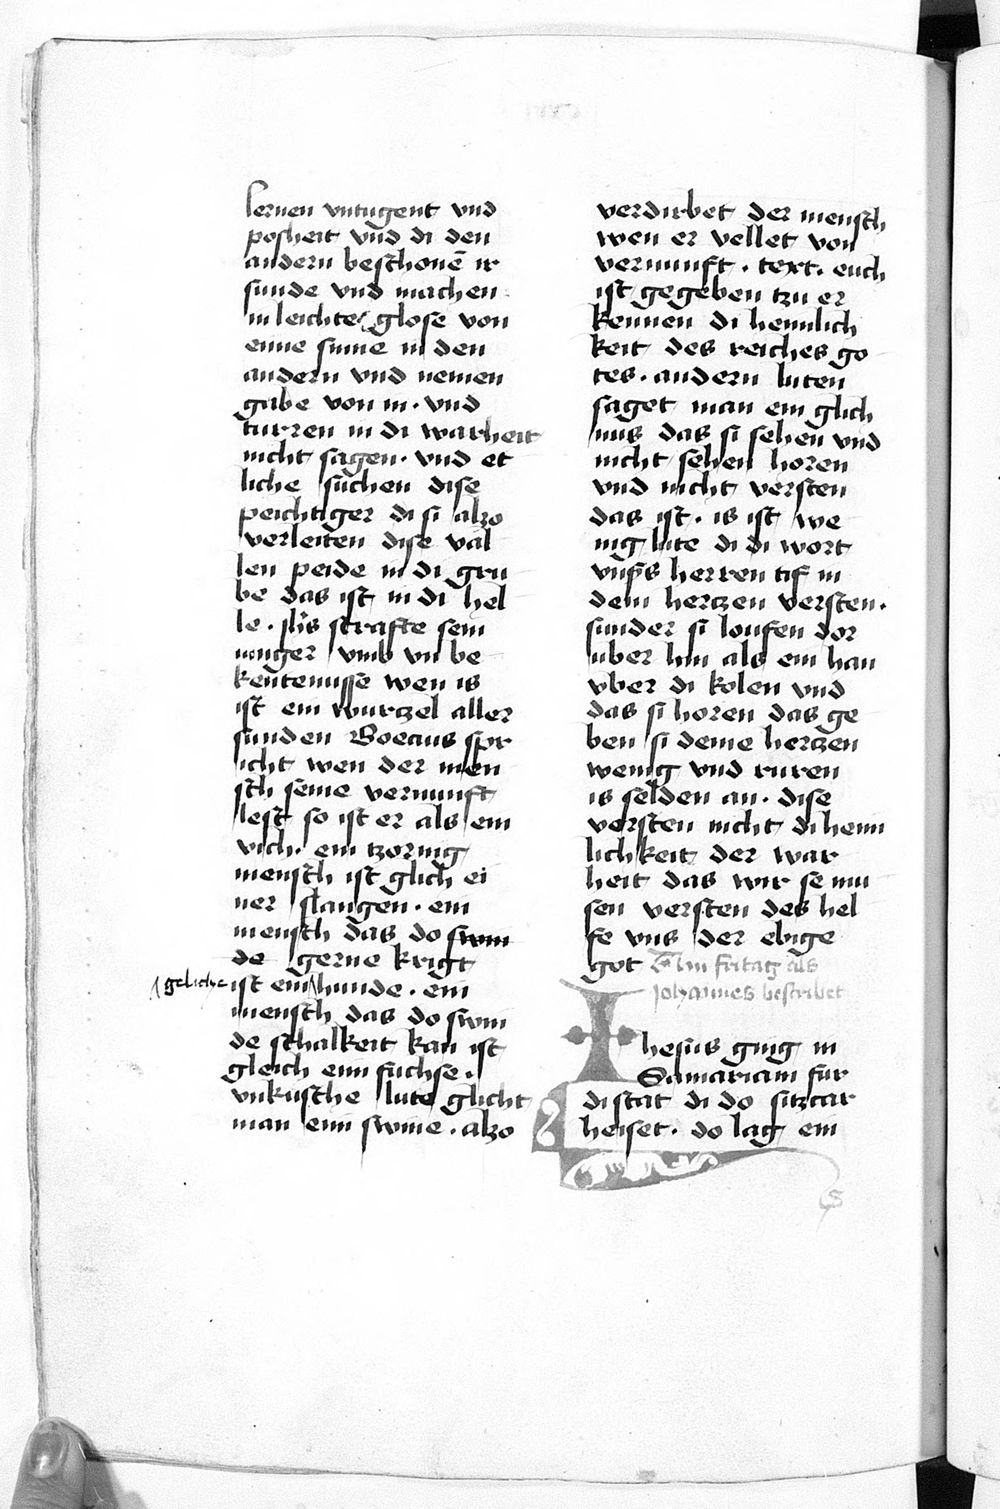 lernen vntugent vnd
posheit vnd di den
andern beschonē ir
sunde vnd machen
in leichte glose von
eime sinne in den
andern vnd nemen
gabe von in · vnd
turren in di warheit
nicht sagen · vnd et
liche suchen dise
peichtiger di si alzo
verleiten dise val
len peide in di gru
be das ist in di hel
le · ihs strafte sein
iunger vmb vn be
kentenisse wen is
ist ein wurtzel aller
sunden Boecius spr
icht wen der men
sch seine vernunft
lest so ist er als ein
vich · ein tzornig
mensch ist glich ei
ner slangen · ein
mensch das do swin
de gerne krigt
geliche ist ein hunde · ein
mensch das do swin
de schalkeit kan ist
gleich eim fuchse ·
vnkusche lute glicht
man eim swine · alzo
verdirbet der mensch
wen er vellet von
vernunft · text · euch
ist gegeben tzu er
kennen di heimlich
keit des reiches go
tes · andern luten
saget man ein glich
nus das si sehen vnd
nicht sehen horen
vnd nicht versten
das ist · is ist we
nig lute di di wort
vnsers herren tif in
dem hertzen versten ·
sunder si loufen dor
uber hin als ein han
vber di kolen vnd
das si horen das ge
ben si deme hertzen
wenig vnd ruren
is selden an · dise
versten nicht di heim
lichkeit der war
heit das wir se mu
sen versten des hel
fe vns der ebige
got Am fritag als
Johannes bescribet
Ihesus ging in
Samariam fur
di stat di do sitzcar
heiset · do lag ein